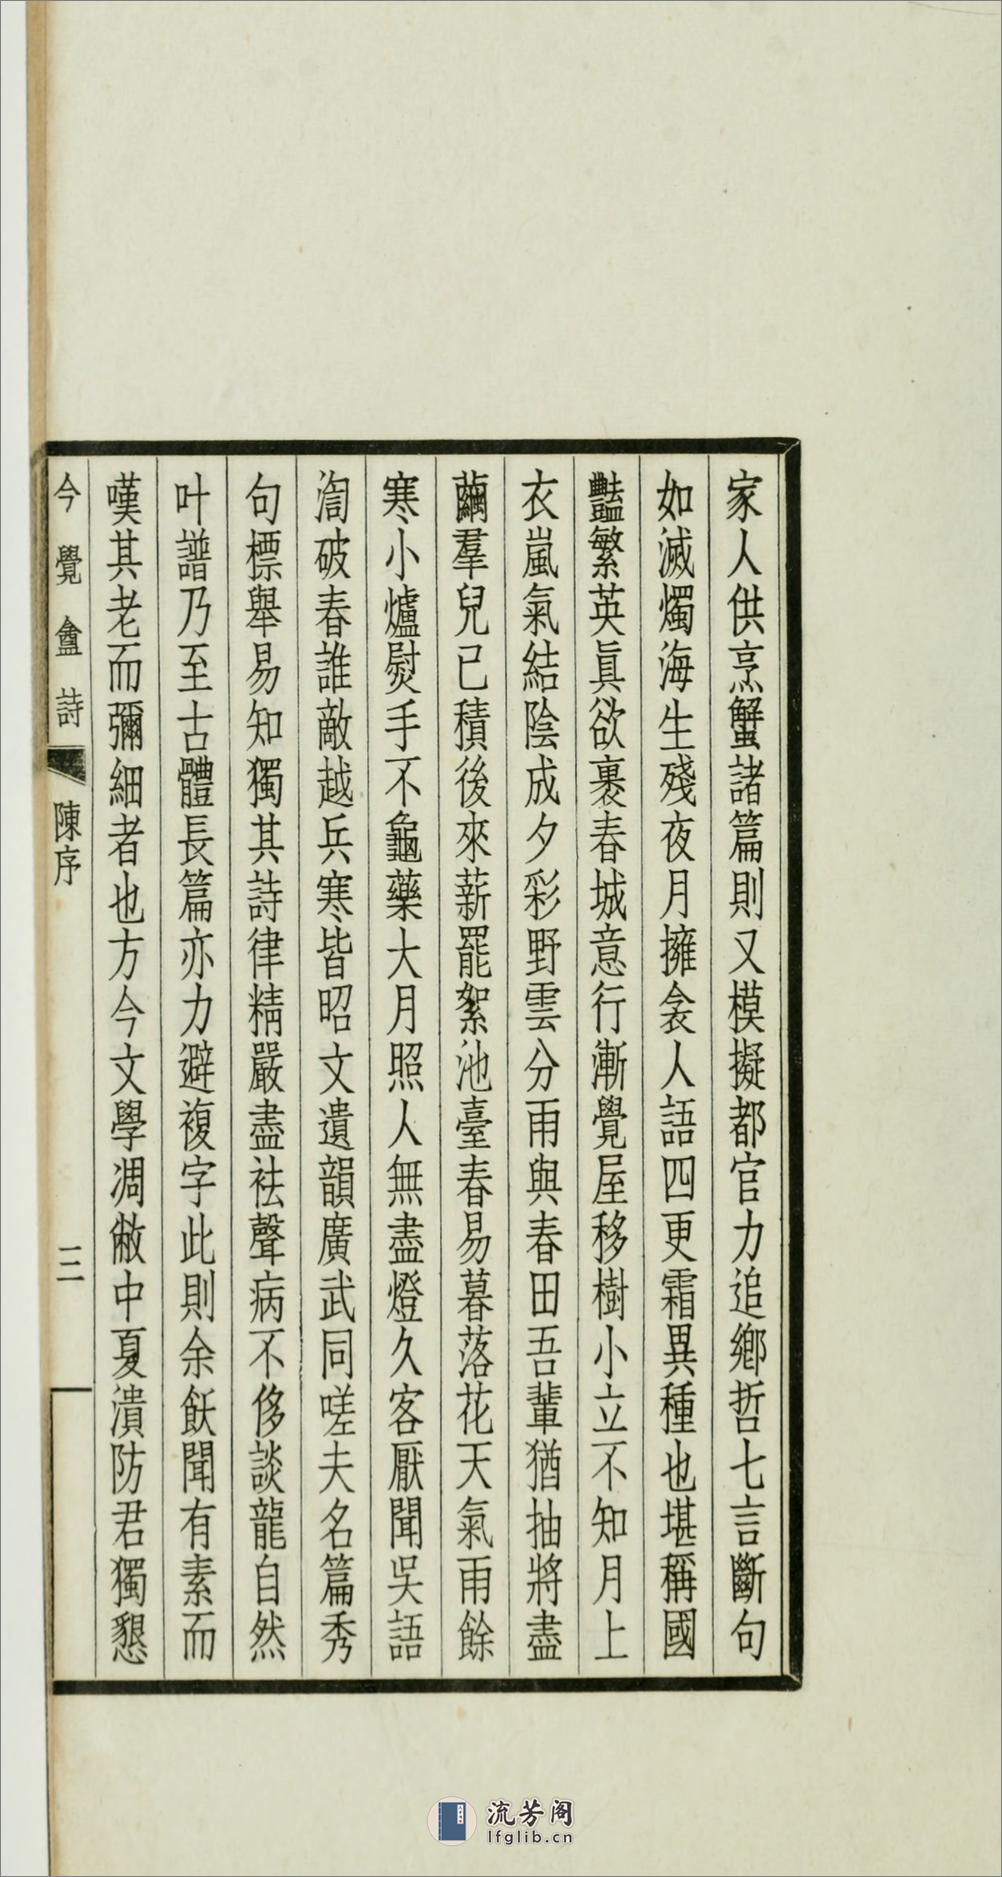 家人供烹蟹諸篇則又模擬都官力追鄉哲七言斷句
如滅燭海生殘夜月擁衾人語四更霜異種也堪稱國
豔繁英眞欲裹春城意行漸覺屋移樹小立不知月上
衣嵐氣結陰成夕彩野雲分雨與春田吾輩猶抽將盡
繭羣兒已積後來薪罷絮池臺春易暮落花天氣雨餘
寒小爐熨手不龜藥大月照人無盡燈久客厭聞吳語
渹破春誰敵越兵寒皆昭文遺韻廣武同嗟夫名篇秀
句標舉易知獨其詩律精嚴盡袪聲病不侈談龍自然
叶譜乃至古體長篇亦力避複字此則余飫聞有素而
嘆其老而彌細者也方今文學凋敝中夏潰防君獨懇
今覺盦詩
陳序
三
流芳阁
lfglib.cn